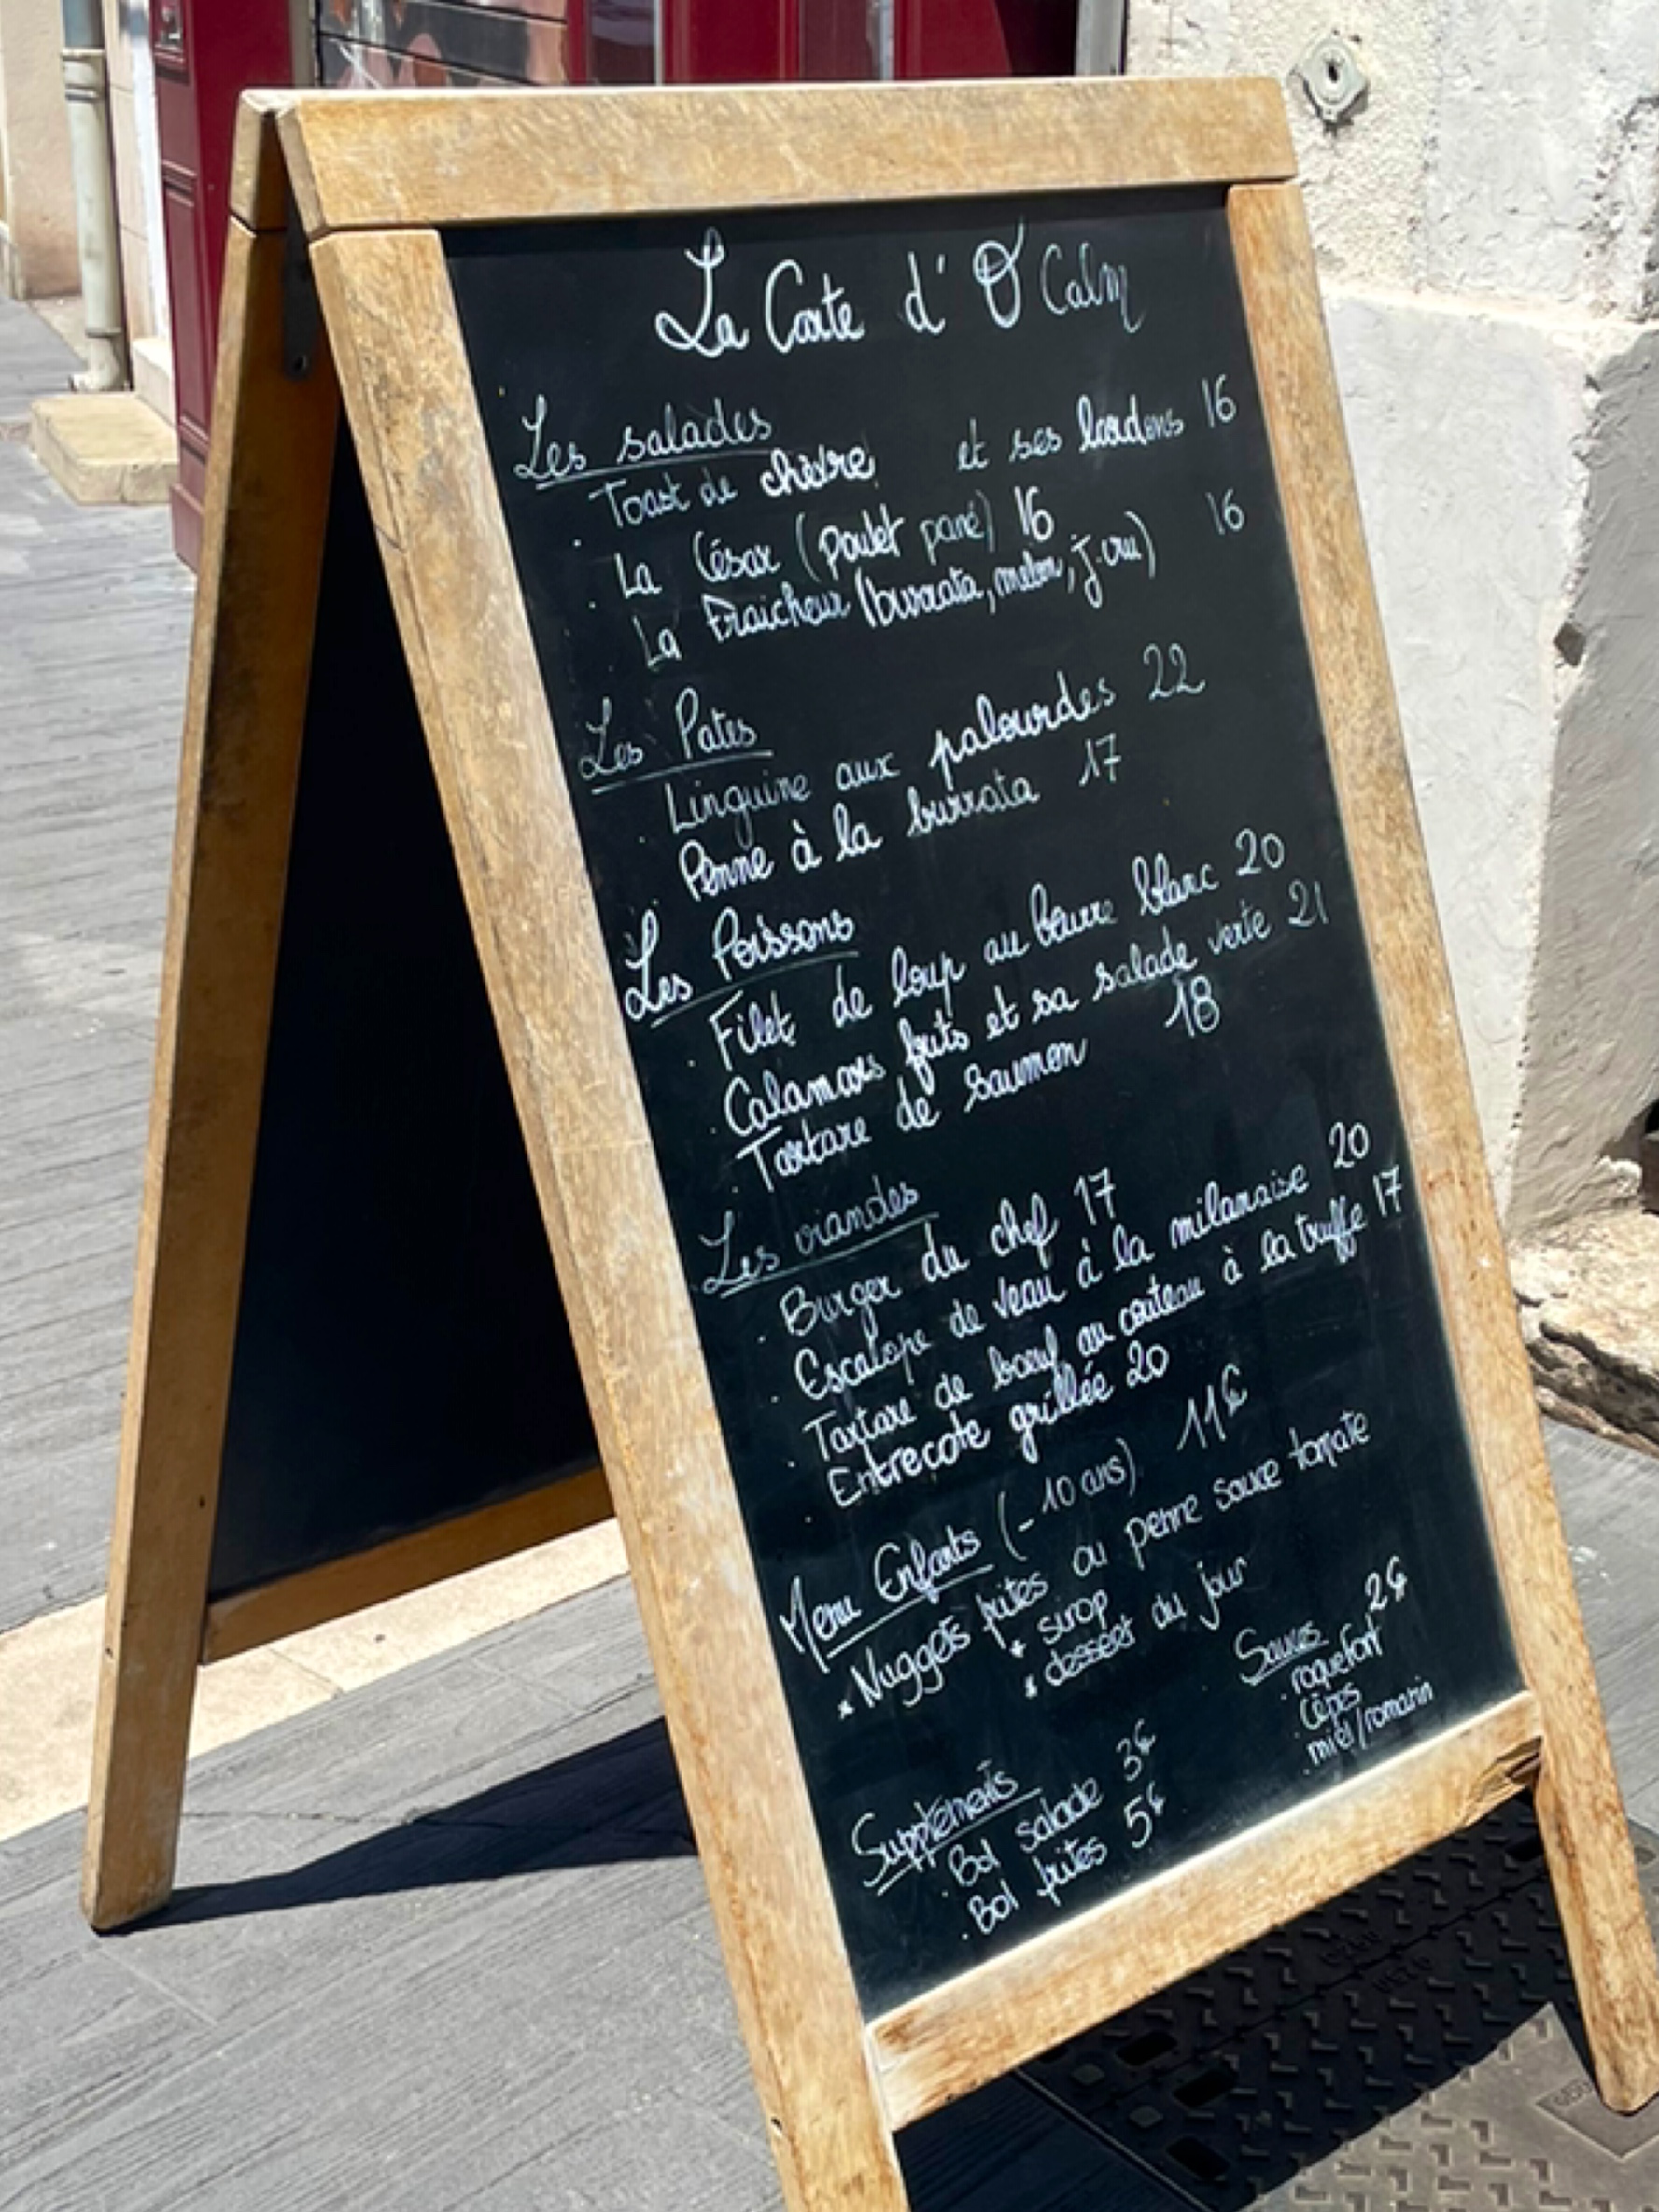 La Carte d' Ô Calm
Les salades
Toast de chèvre et ses lardons 16
. La César (poulet pané) 16
. La Fraicheur (burrata, melon, j.cru) 16
Les Pates
. Linguine aux palourdes 22
Penne à la burrata 17
Les Poissons
. Filet de loup au beurre blanc 20
. Calamars frits et sa salade verte 21
. Tartare de saumon 18
Les viandes
. Burger du chef 17
. Escalope de veau à la milanaise 20
. Tartare de boeuf au couteau à la truffe 17
. Entrecote grillée 20
Menu Enfants (-10 ans) 11€
* Nuggets frites ou penne sauce tomate
* sirop
* dessert du jour
Sauces 2€
. roquefort
. Cèpes
. miel/romarin
Suppléments
. Bol salade 3€
. Bol frites 5€